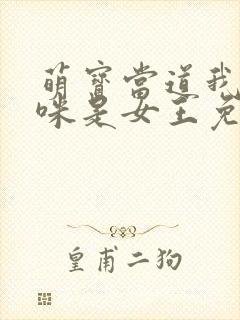 萌寶當道我
咪是女王免
皇甫二狗